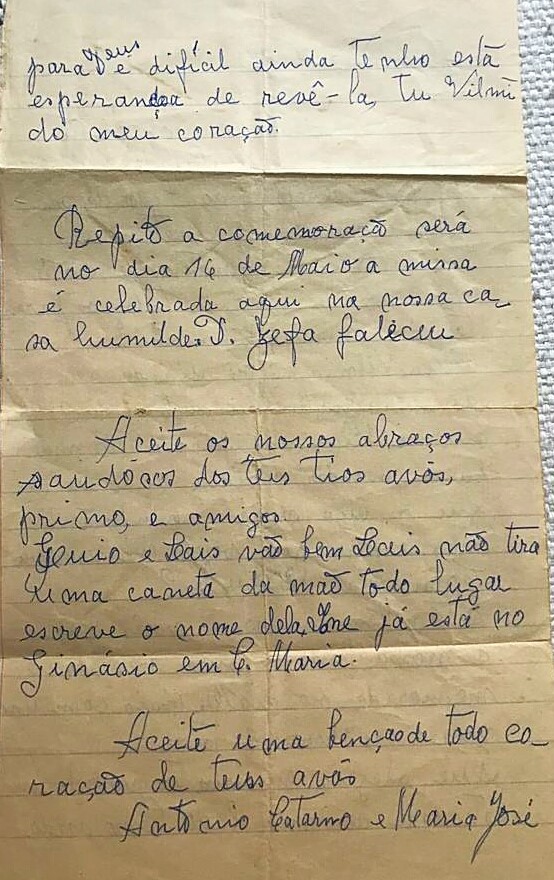 para Deus é difícil ainda tenho está
esperança de revê-la, tu Vilmi
do meu coração.
Repito a comemoração será
no dia 14 de Maio a missa
é celebrada aqui na nossa ca-
sa humilde. D. Zefa faleciu
Aceite os nossos abraços
saudósos dos teus tios avós,
primo, e amigos.
e Lais vão bem Lais não tira
uma caneta da mão todo lugar
escreve o nome dela, já está no
Ginásio em C. Maria.
Aceite uma benção de todo co-
ração de teus avós
Antonio Catarino e Maria José